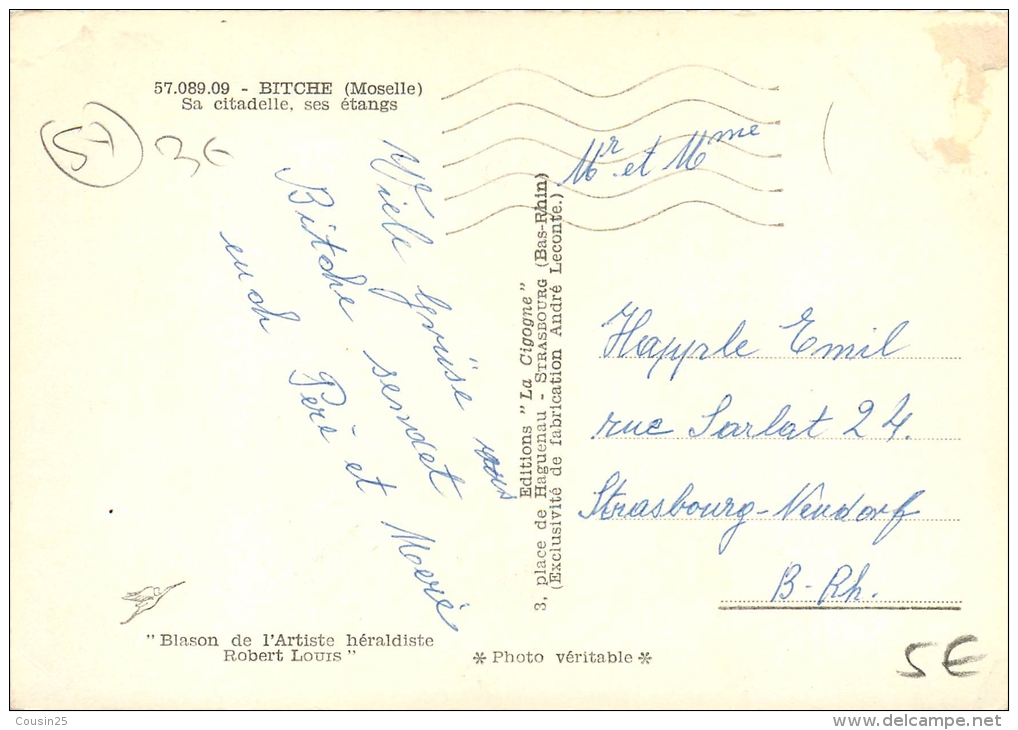 57.089.09 - BITCHE (Moselle)
Sa citadelle, ses étangs
57
3€
Viele Grüse aus
Bitche sendet
euch Père et Moeré
Editions "La Cigogne"
3, place de Haguenau - STRASBOURG (Bas-Rhin)
(Exclusivité de fabrication André Leconte.)
Mr et Mme
Happle Emil
rue Sarlat 24.
Strasbourg-Neudorf
B-Rh.
"Blason de l'Artiste héraldiste
Robert LOUIS"
* Photo véritable *
5€
Cousin25
www.delcampe.net